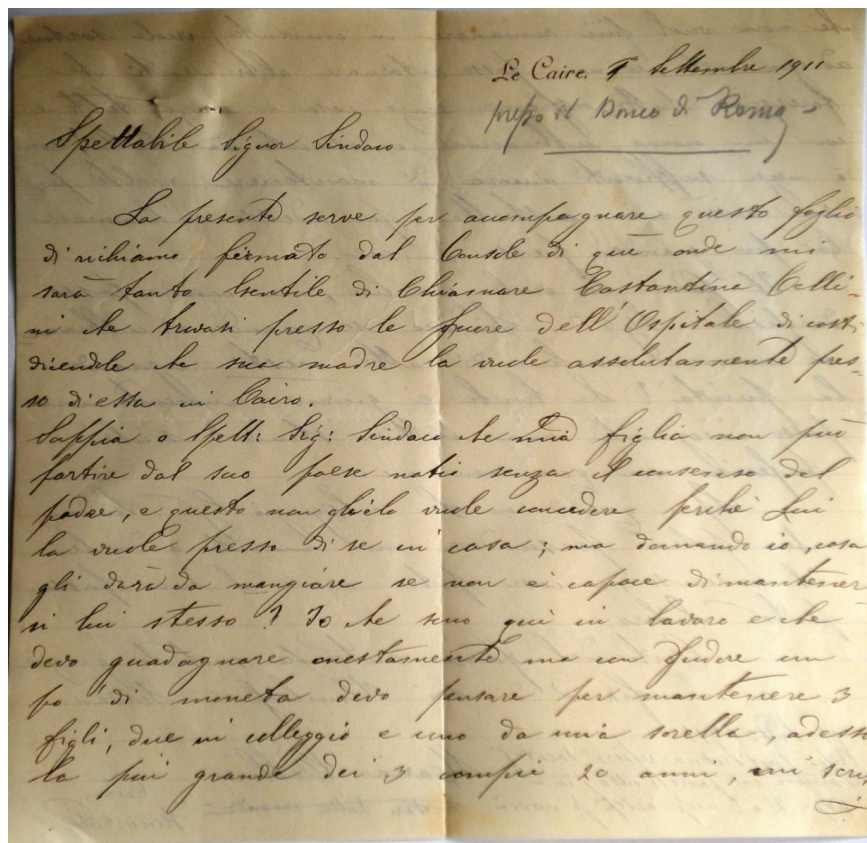 Le Caire, Settembre 1911
presso il Banco di Roma
Spettabile Signor Sindaco
La presente serve per accompagnare questo foglio
di richiamo firmato dal Console di qui onde mi
sarà tanto Gentile di Chiamare Costantina Celli-
ni che trovasi presso le Suore dell'Ospitale di costì
dicendole che sua madre la vuole assolutamente pres-
so di essa in Cairo.
Sappia o Spett: Sig: Sindaco che mia figlia non può
partire dal suo paese natio senza il consenso del
padre, e questo non glielo vuole concedere perchè Lui
la vuole presso di se in casa; ma domando io, cosa
gli darà da mangiare se non è capace di mantener-
si lui stesso? Io che sono qui in lavoro e che
devo guadagnare onestamente ma con sudore un
po di moneta devo pensare per mantenere 3
figli, due in colleggio e uno da mia sorella, adesso
la più grande dei 3 compie 20 anni, mi scri